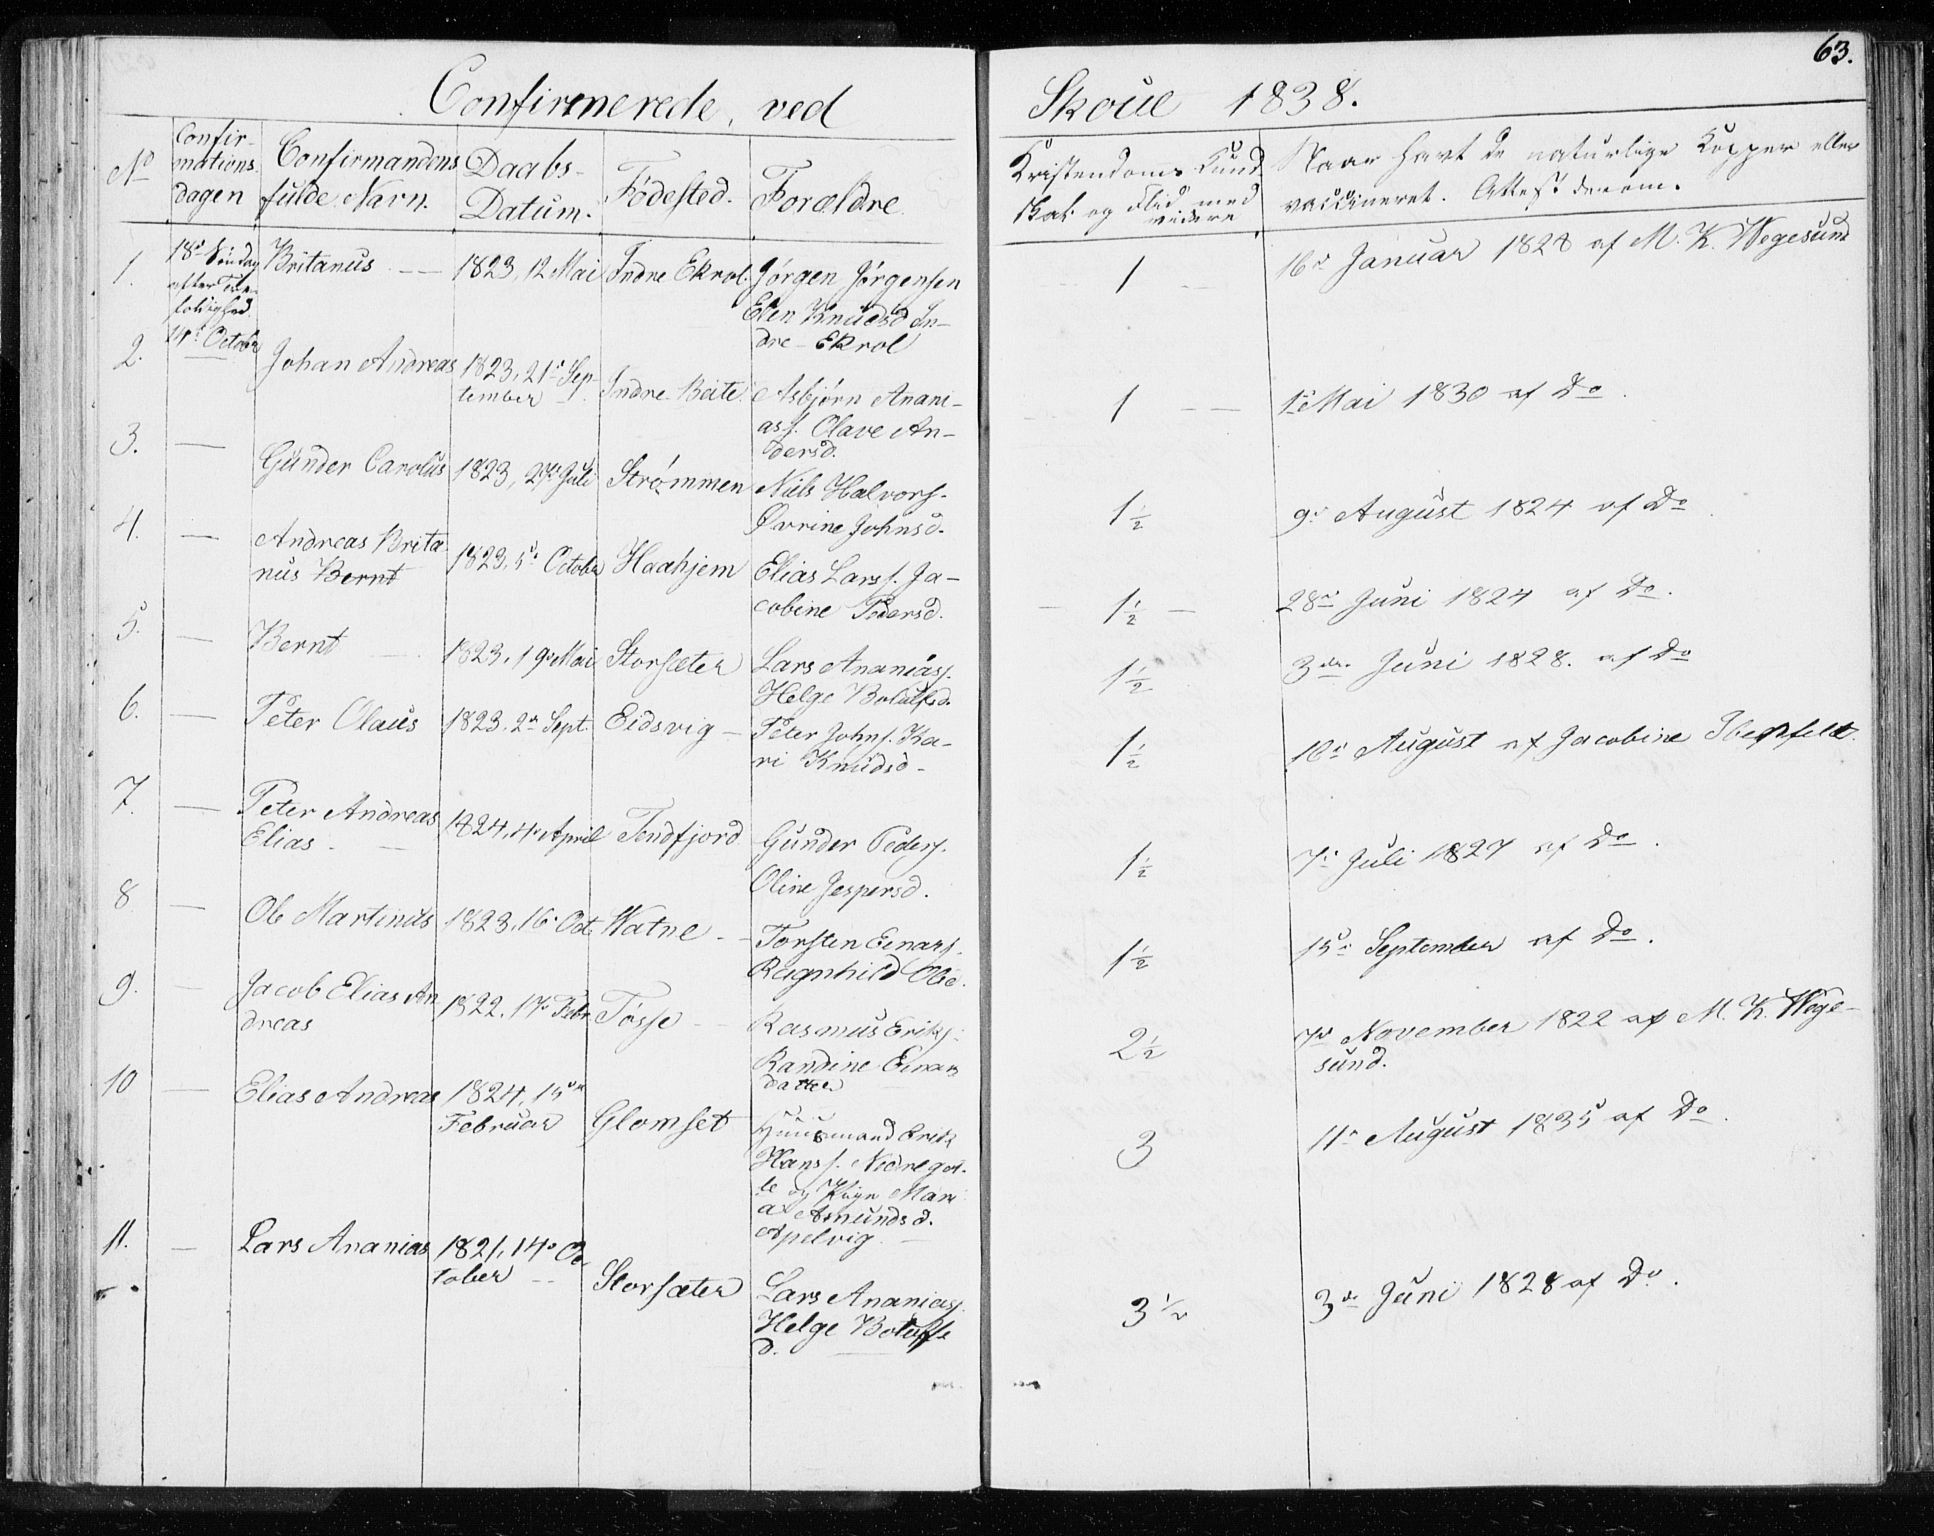 63.
Confirmerede ved Skoue 1838.
No
Confir-
mations
dagen
Confirmandens
fulde Navn.
Daabs-
Datum.
Fødested.
Forældre
Kristendoms Kund
skab og Flid med
videre
Naar havt de naturlige Kopper eller
vaccineret. Attest derom.
1.
18de Søndag
efter Tre-
foldighed
14de October
Britanus
1823, 12 Mai
Indre Ekrol
Jørgen Jørgensen
Elen Knudsd In-
dre Ekrol
1
16de Januar 1828 af M. K. Wegesund
2.
Johan Andreas
1823, 21de Sep-
tember
Indre Beite
Asbjørn Anani-
ass. Olave An-
dersd.
1
1ste Mai 1830 af Do
3.
Gunder Carolus
1823, 27de Juli
Strømmen
Niels Halvors.
Øvrine Johnsd.
1½
9de August 1824 af Do
4.
Andreas Brita
nus Bernt
1823, 5te October
Haahjem
Elias Larss. Ja-
cobine Pedersd.
1½
28de Juni 1824 af Do.
5.
Bernt
1823, 19de Mai
Storsæter
Lars Ananiass.
Helge Bolulfsd.
1½
3die Juni 1828. af Do
6.
Peter Olaus
1823, 2den Sept.
Eidsvig
Peter Johns. Ka-
ri Knudsd
1½
18de August af Jacobine
7.
Peter Andreas
Elias
1824, 4de April
Tendfjord
Gunder Peders.
Oline Jespersd.
1½
7de Juli 1827 af Do.
8
Ole Martinus
1823, 16de Oct.
Watne
Torsten Einars.
Ragnhild Olsd.
1½
15de September af Do.
9.
Jacob Elias An
dreas
1822, 17de Febr.
Tøsse
Rasmus Eriks.
Randine Einars
datter
2½
7de November 1822 af M. K. Wege-
sund.
10
Elias Andreas
1824, 15den
Februar
Glomset
Huusmand Erik
Hanss. Nedregot-
te og Pige Mari
a Amundsd.
Apelvig
3
11te August 1835 af Do.
11.
Lars Ananias
1821, 14de Oc
tober
Storsæter
Lars Ananiass.
Helge Bolulfs
d.
3½
3die Juni 1828 af Do.